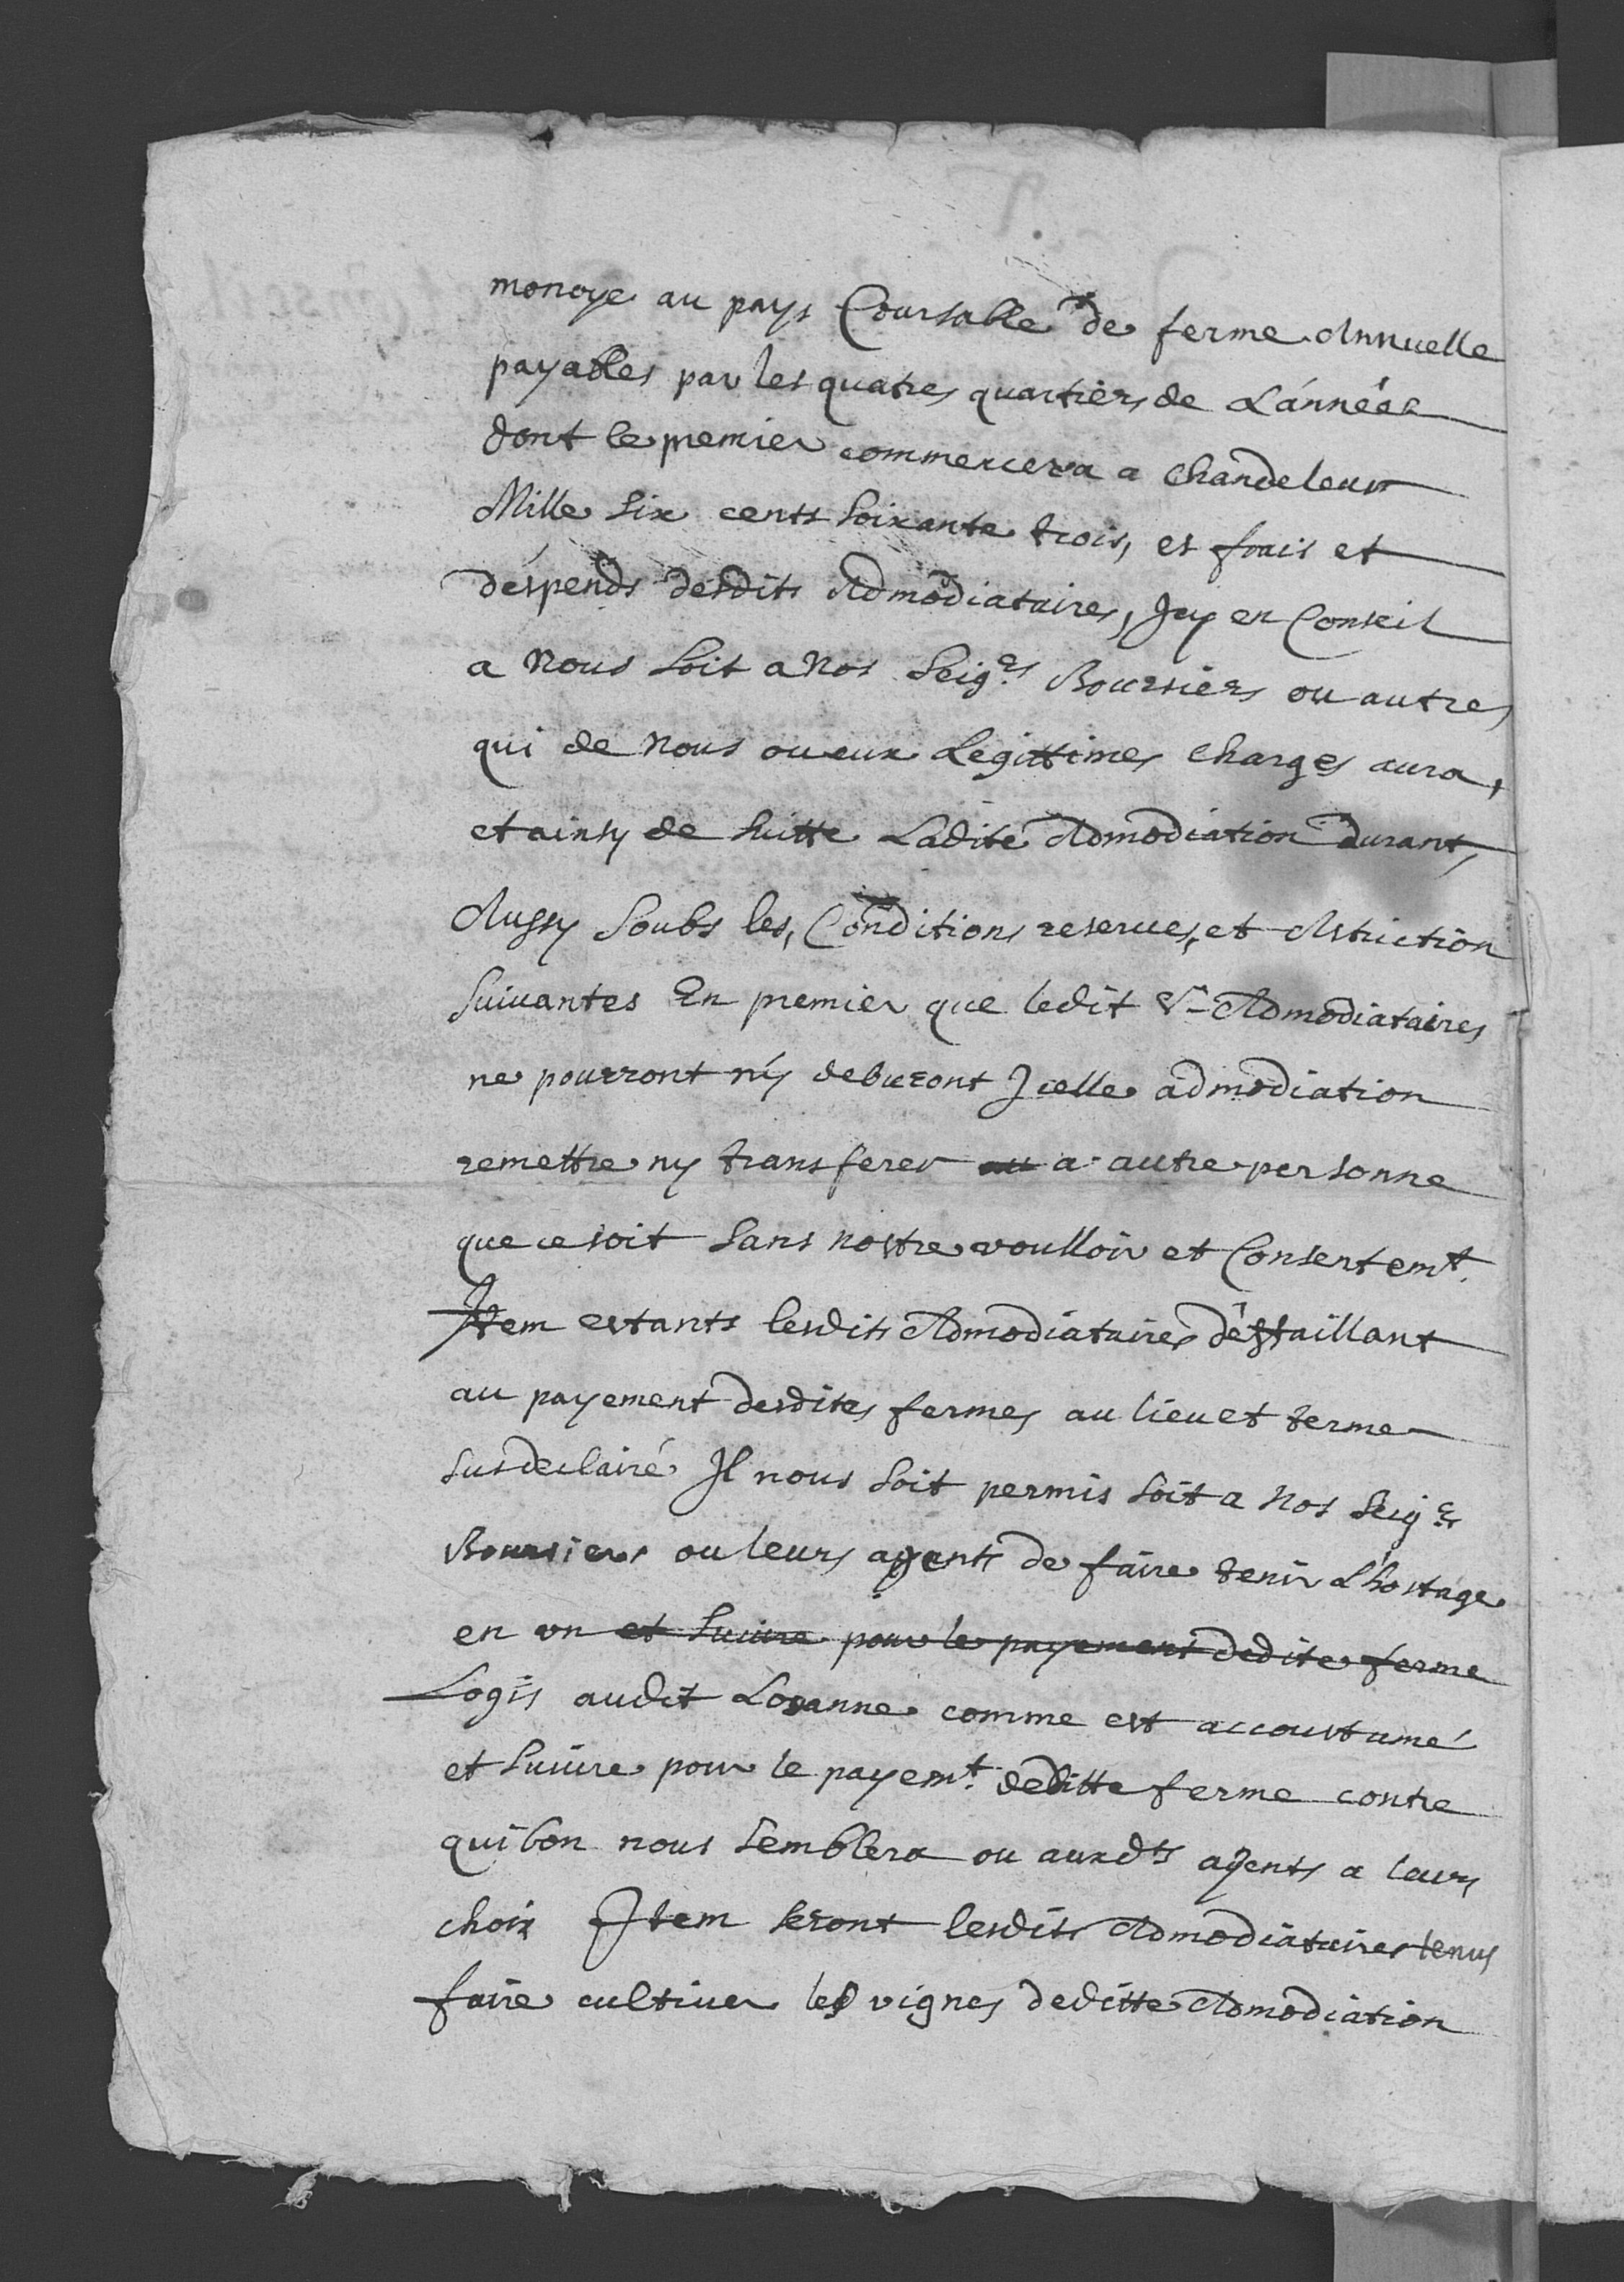 monoye au pays Coursable de ferme Annuelle
payables par les quatres quartiers de L'année
dont le premier commencera a Chandeleur
Mille six cents soixante trois, es frais et
despends desdits Admodiataires, Icy en Conseil
a Nous soit a Nos Seig.rs Boursiers ou autres
qui de Nous ou eux Legittimes charges aura,
et ainsy de suitte Ladite Admodiation durant,
Aussy soubs les, Conditions reserues, et Astriction
suiuantes En premier que ledit Sr Admodiataires
ne pourront ny deburont Icelle admodiation
remettre ny transferer au a autre personne
que ce soit sans nostre voulloir et Consentemt.
Item estants lesdits Admodiataires deffaillant
au payement desdites fermes au lieu et terme
susdeclairé Il nous soit permis soit a Nos Seig.rs
Boursiers ou leurs agents de faire tenir L'hostage
en vn et suiure pour le payement dedite ferme
Logis audit Losanne comme est accoustumé
et suiure pour le payemt. deditte ferme contre
qui bon nous semblera ou auxdts agents a leurs
choix Item seront lesdits Admodiataires tenus
faire cultiuer les vignes deditte Admodiation